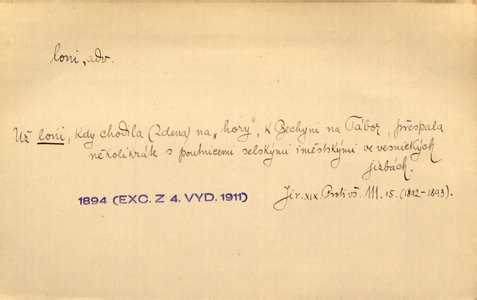 loni, adv.
Už loni, kdy chodila (Zdena) na „hory“, k Bechyni na Tábor, přespala
několikrák s poutnicemi selskými i městskými ve vesnických
jizbách.
1894 (EXC. Z 4. VYD. 1911)
Jir. XIX. Proti vš. III. 15. (1892–1893).